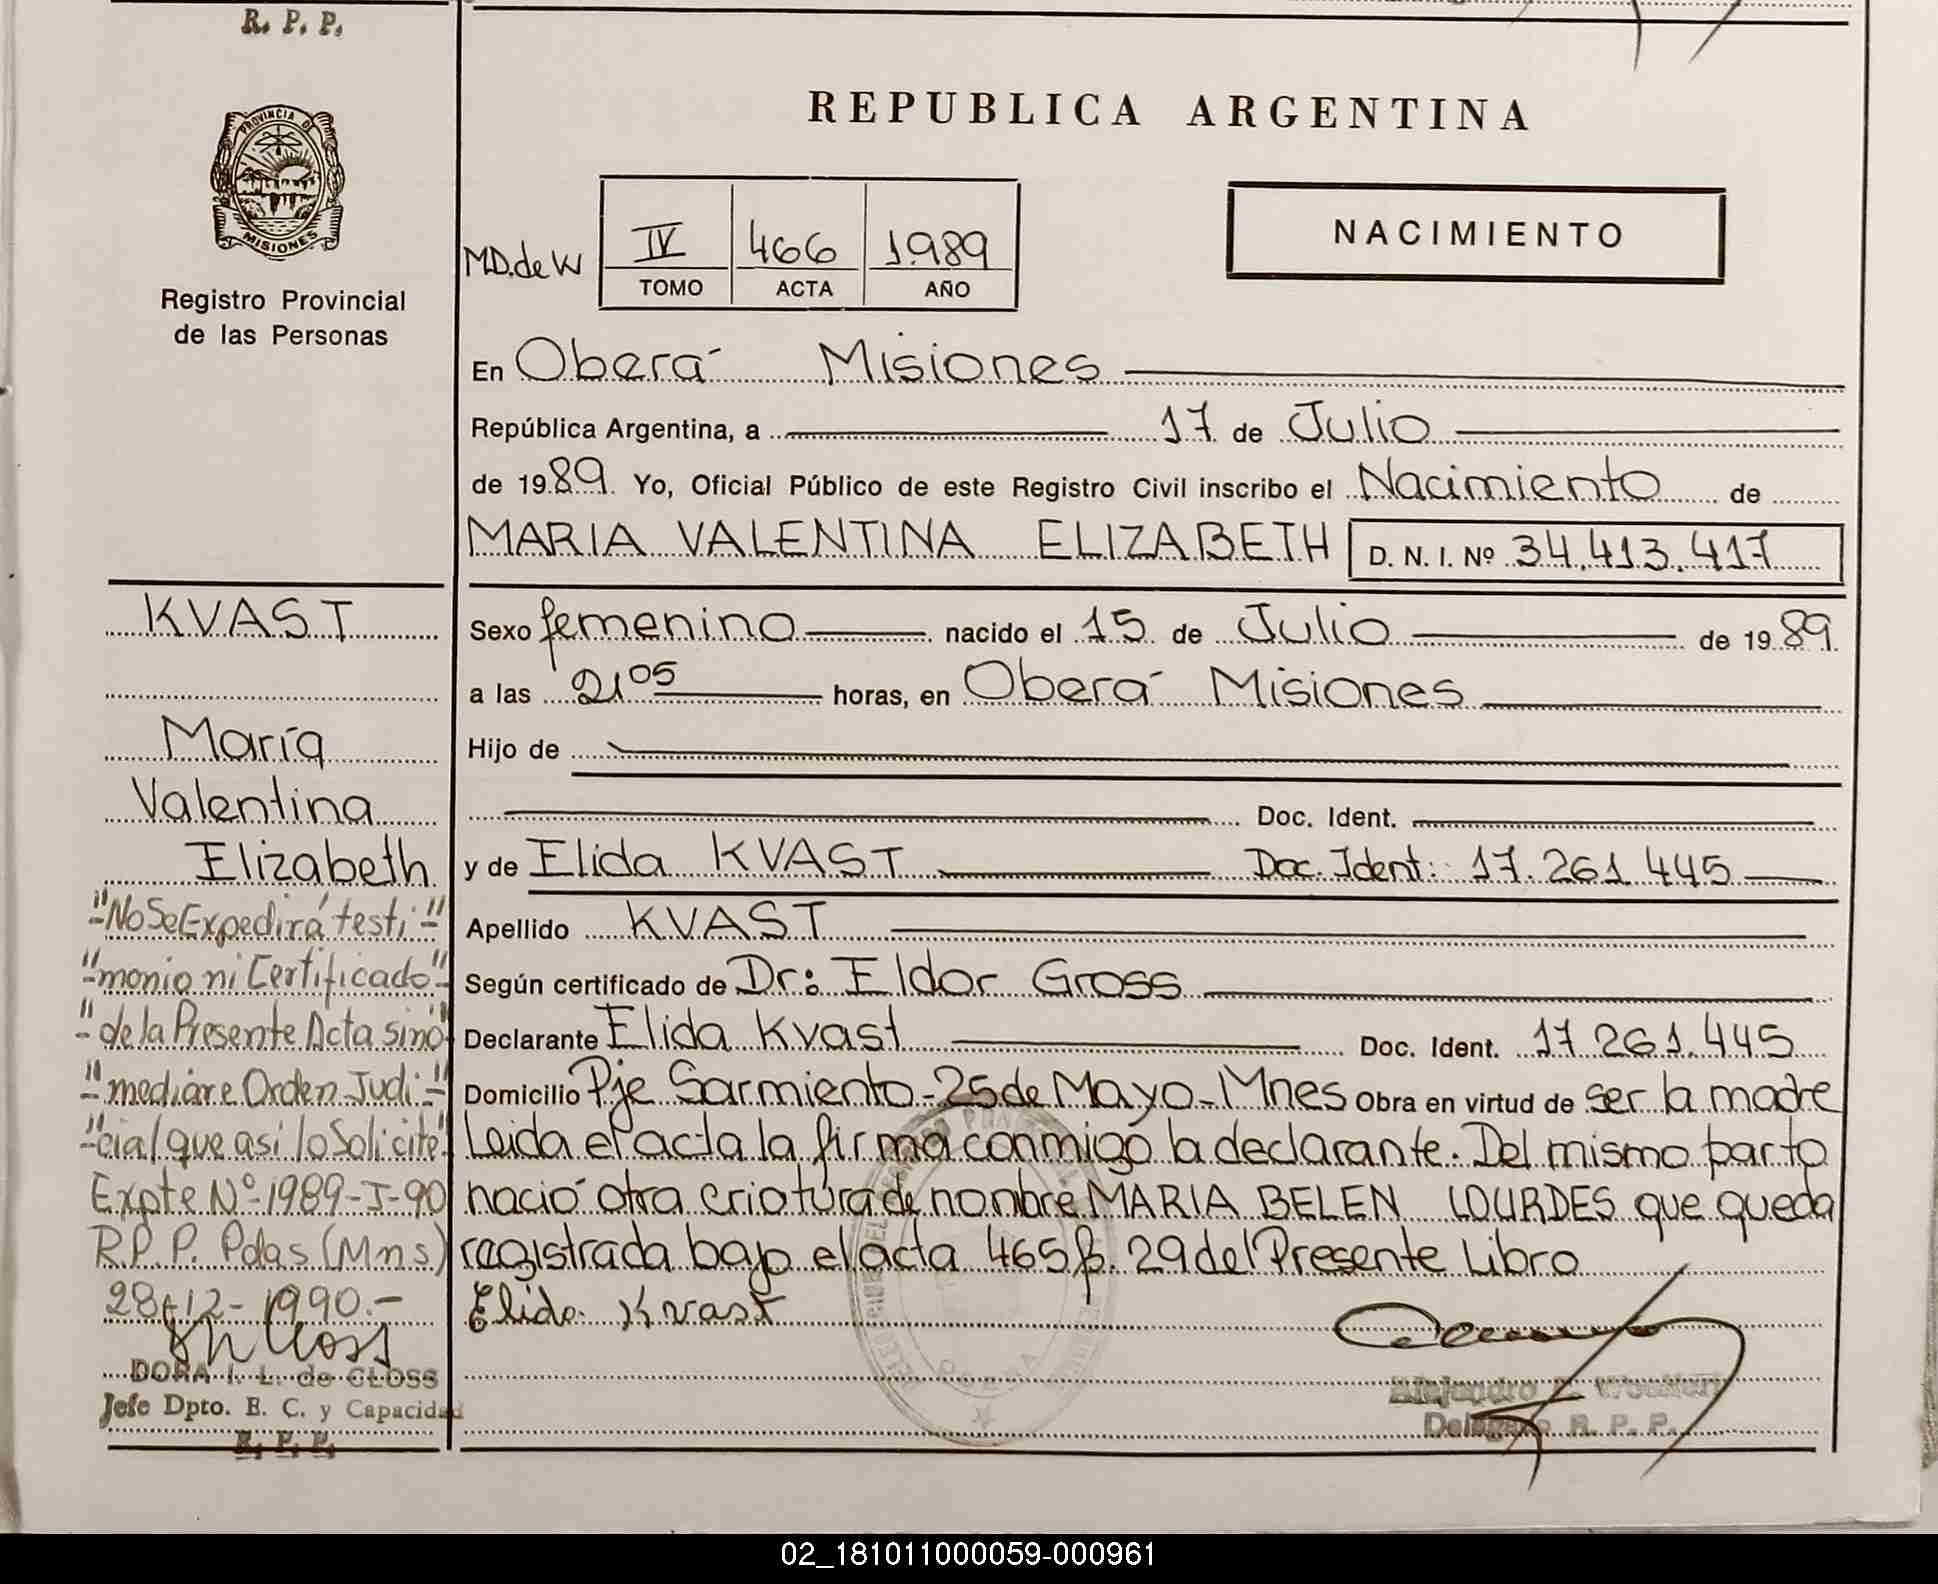 R. P. P.
PROVINCIA DE
MISIONES
Registro Provincial
de las Personas
REPUBLICA ARGENTINA
NACIMIENTO
M.D. de W
IV 466 1989
TOMO ACTA AÑO
En Oberá Misiones
República Argentina, a 17 de Julio
de 1989 Yo, Oficial Público de este Registro Civil inscribo el Nacimiento de
MARIA VALENTINA ELIZABETH D. N. I. Nº 34.413.417
Sexo femenino nacido el 15 de Julio de 1989
a las 21 05 horas, en Oberá Misiones
Hijo de
Doc. Ident.
y de Elida KVAST Doc. Ident: 17.261.445
Apellido KVAST
Según certificado de Dr: Eldor Gross
Declarante Elida Kvast Doc. Ident. 17.261.445
Domicilio Pje Sarmiento-25 de Mayo-Mnes Obra en virtud de ser la madre
Leida el acta la firma conmigo la declarante. Del mismo parto
nació otra criatura de nombre MARIA BELEN LOURDES que queda
registrada bajo el acta 465 f. 29 del Presente Libro
Elida Kvast
Alejandro
Delegado R. P. P.
KVAST
María
Valentina
Elizabeth
"No Se Expedirá testi-"
"monio ni Certificado"
"de la Presente Acta sino
"mediare Orden Judi-"
"cial que asi lo Solicite"
Expte Nº 1989-J-90
R.P.P. Pdas (Mns)
28-12-1990.-
DORA I. L. de CLOSS
Jefe Dpto. E. C. y Capacidad
R. P. P.
02_181011000059-000961